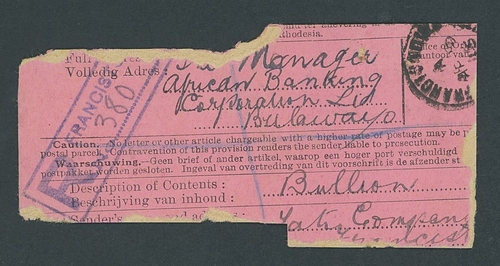 Rhodesia.
The Manager
Volledig Adres:
African Banking
Corporation Ltd
Bulawayo
FRANCIS
380
Caution.—No letter or other article chargeable with a higher rate of postage may be
postal parcel. Contravention of this provision renders the sender liable to prosecution.
Waarschuwing.—Geen brief of ander artikel, waarop een hoger port verschuldigd
postpakket worden gesloten. Ingeval van overtreding van dit voorschrift is de afzender
Description of Contents:
Beschrijving van inhoud:
Bullion
Tati Company